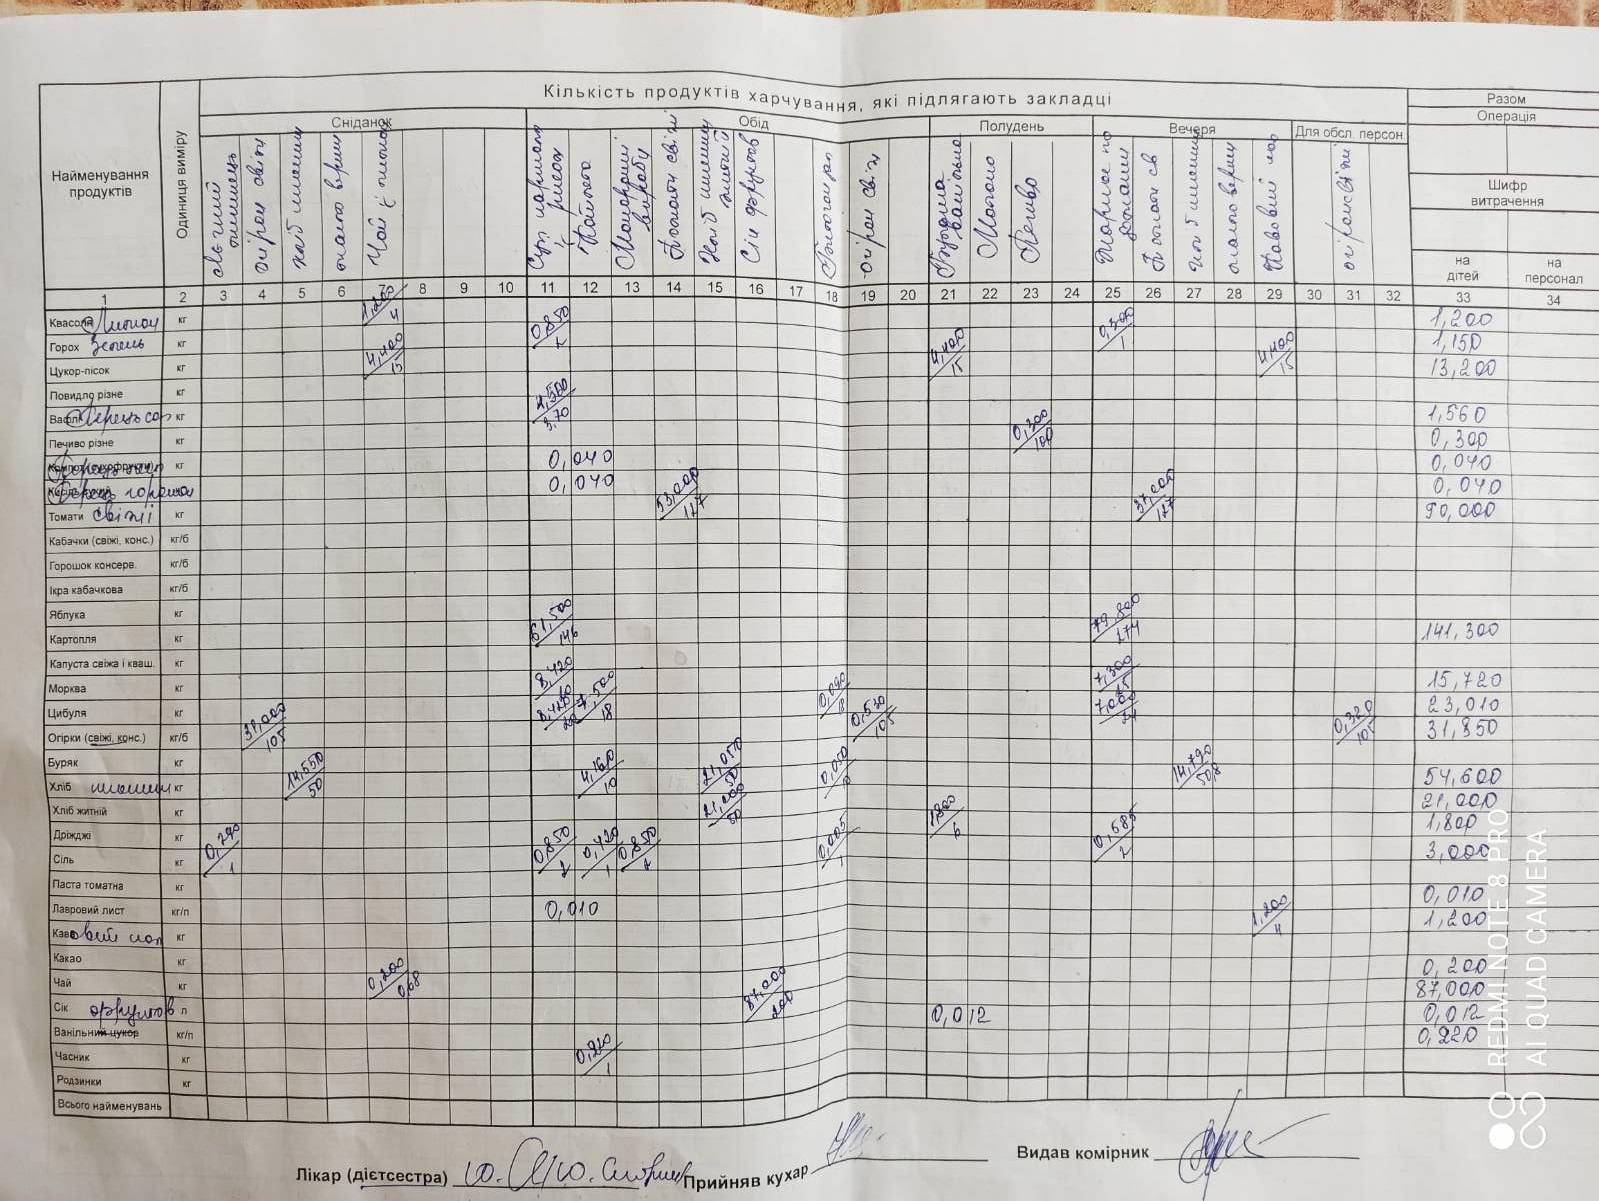 Кількість продуктів харчування, які підлягають закладці
Разом
Операція
Найменування продуктів
Одиниця виміру
Сніданок
Обід
Полудень
Вечеря
Для обсл. персон.
Шифр витрачення
на дітей
на персонал
огірки свіжі
хліб пшенич
Чай з лимоном
Томати свіжі
Хліб пшенич
житній
Сік фруктов
огірки свіж
Молоко
Печиво
Томати св
хліб пшенич
Кавовий нап
огірки свіжі
1 2 3 4 5 6 7 8 9 10 11 12 13 14 15 16 17 18 19 20 21 22 23 24 25 26 27 28 29 30 31 32 33 34
Квасоля Лимон кг 1,200/4 1,200
Горох зелень кг 0,850/2 0,300/1 1,150
Цукор-пісок кг 4,400/15 4,400/15 4,400/15 13,200
Повидло різне кг
Вафлі Перець сол кг 1,560
Печиво різне кг 0,300/100 0,300
кг 0,040 0,040
Перець горошок 0,040 0,040
Томати свіжі кг 53,000/127 37,000/127 90,000
Кабачки (свіжі, конс.) кг/б
Горошок консерв. кг/б
Ікра кабачкова кг/б
Яблука кг
Картопля кг 61,500/146 79,800/274 141,300
Капуста свіжа і кваш. кг
Морква кг 8,420 7,300/25 15,720
Цибуля кг 8,420/20 7,500/18 0,090/8 7,000/24 23,010
Огірки (свіжі, конс.) кг/б 31,000/105 0,530/105 0,320/105 31,850
Буряк кг
Хліб пшенич кг 14,550/50 4,160/10 21,050/50 0,050/10 14,790/50,8 54,600
Хліб житній кг 21,000/50 21,000
Дріжджі кг 1,800/6 1,800
Сіль кг 0,290/1 0,850/2 0,420/1 0,850/2 0,005/1 0,585/2 3,000
Паста томатна кг
Лавровий лист кг/п 0,010 0,010
Кавовий нап кг 1,200/4 1,200
Какао кг
Чай кг 0,200/0,68 0,200
Сік фруктов л 87,000/200 87,000
Ванільний цукор кг/п 0,012 0,012
Часник кг 0,220/1 0,220
Родзинки кг
Всього найменувань
Лікар (дієтсестра)
Прийняв кухар
Видав комірник
REDMI NOTE 8 PRO
AI QUAD CAMERA